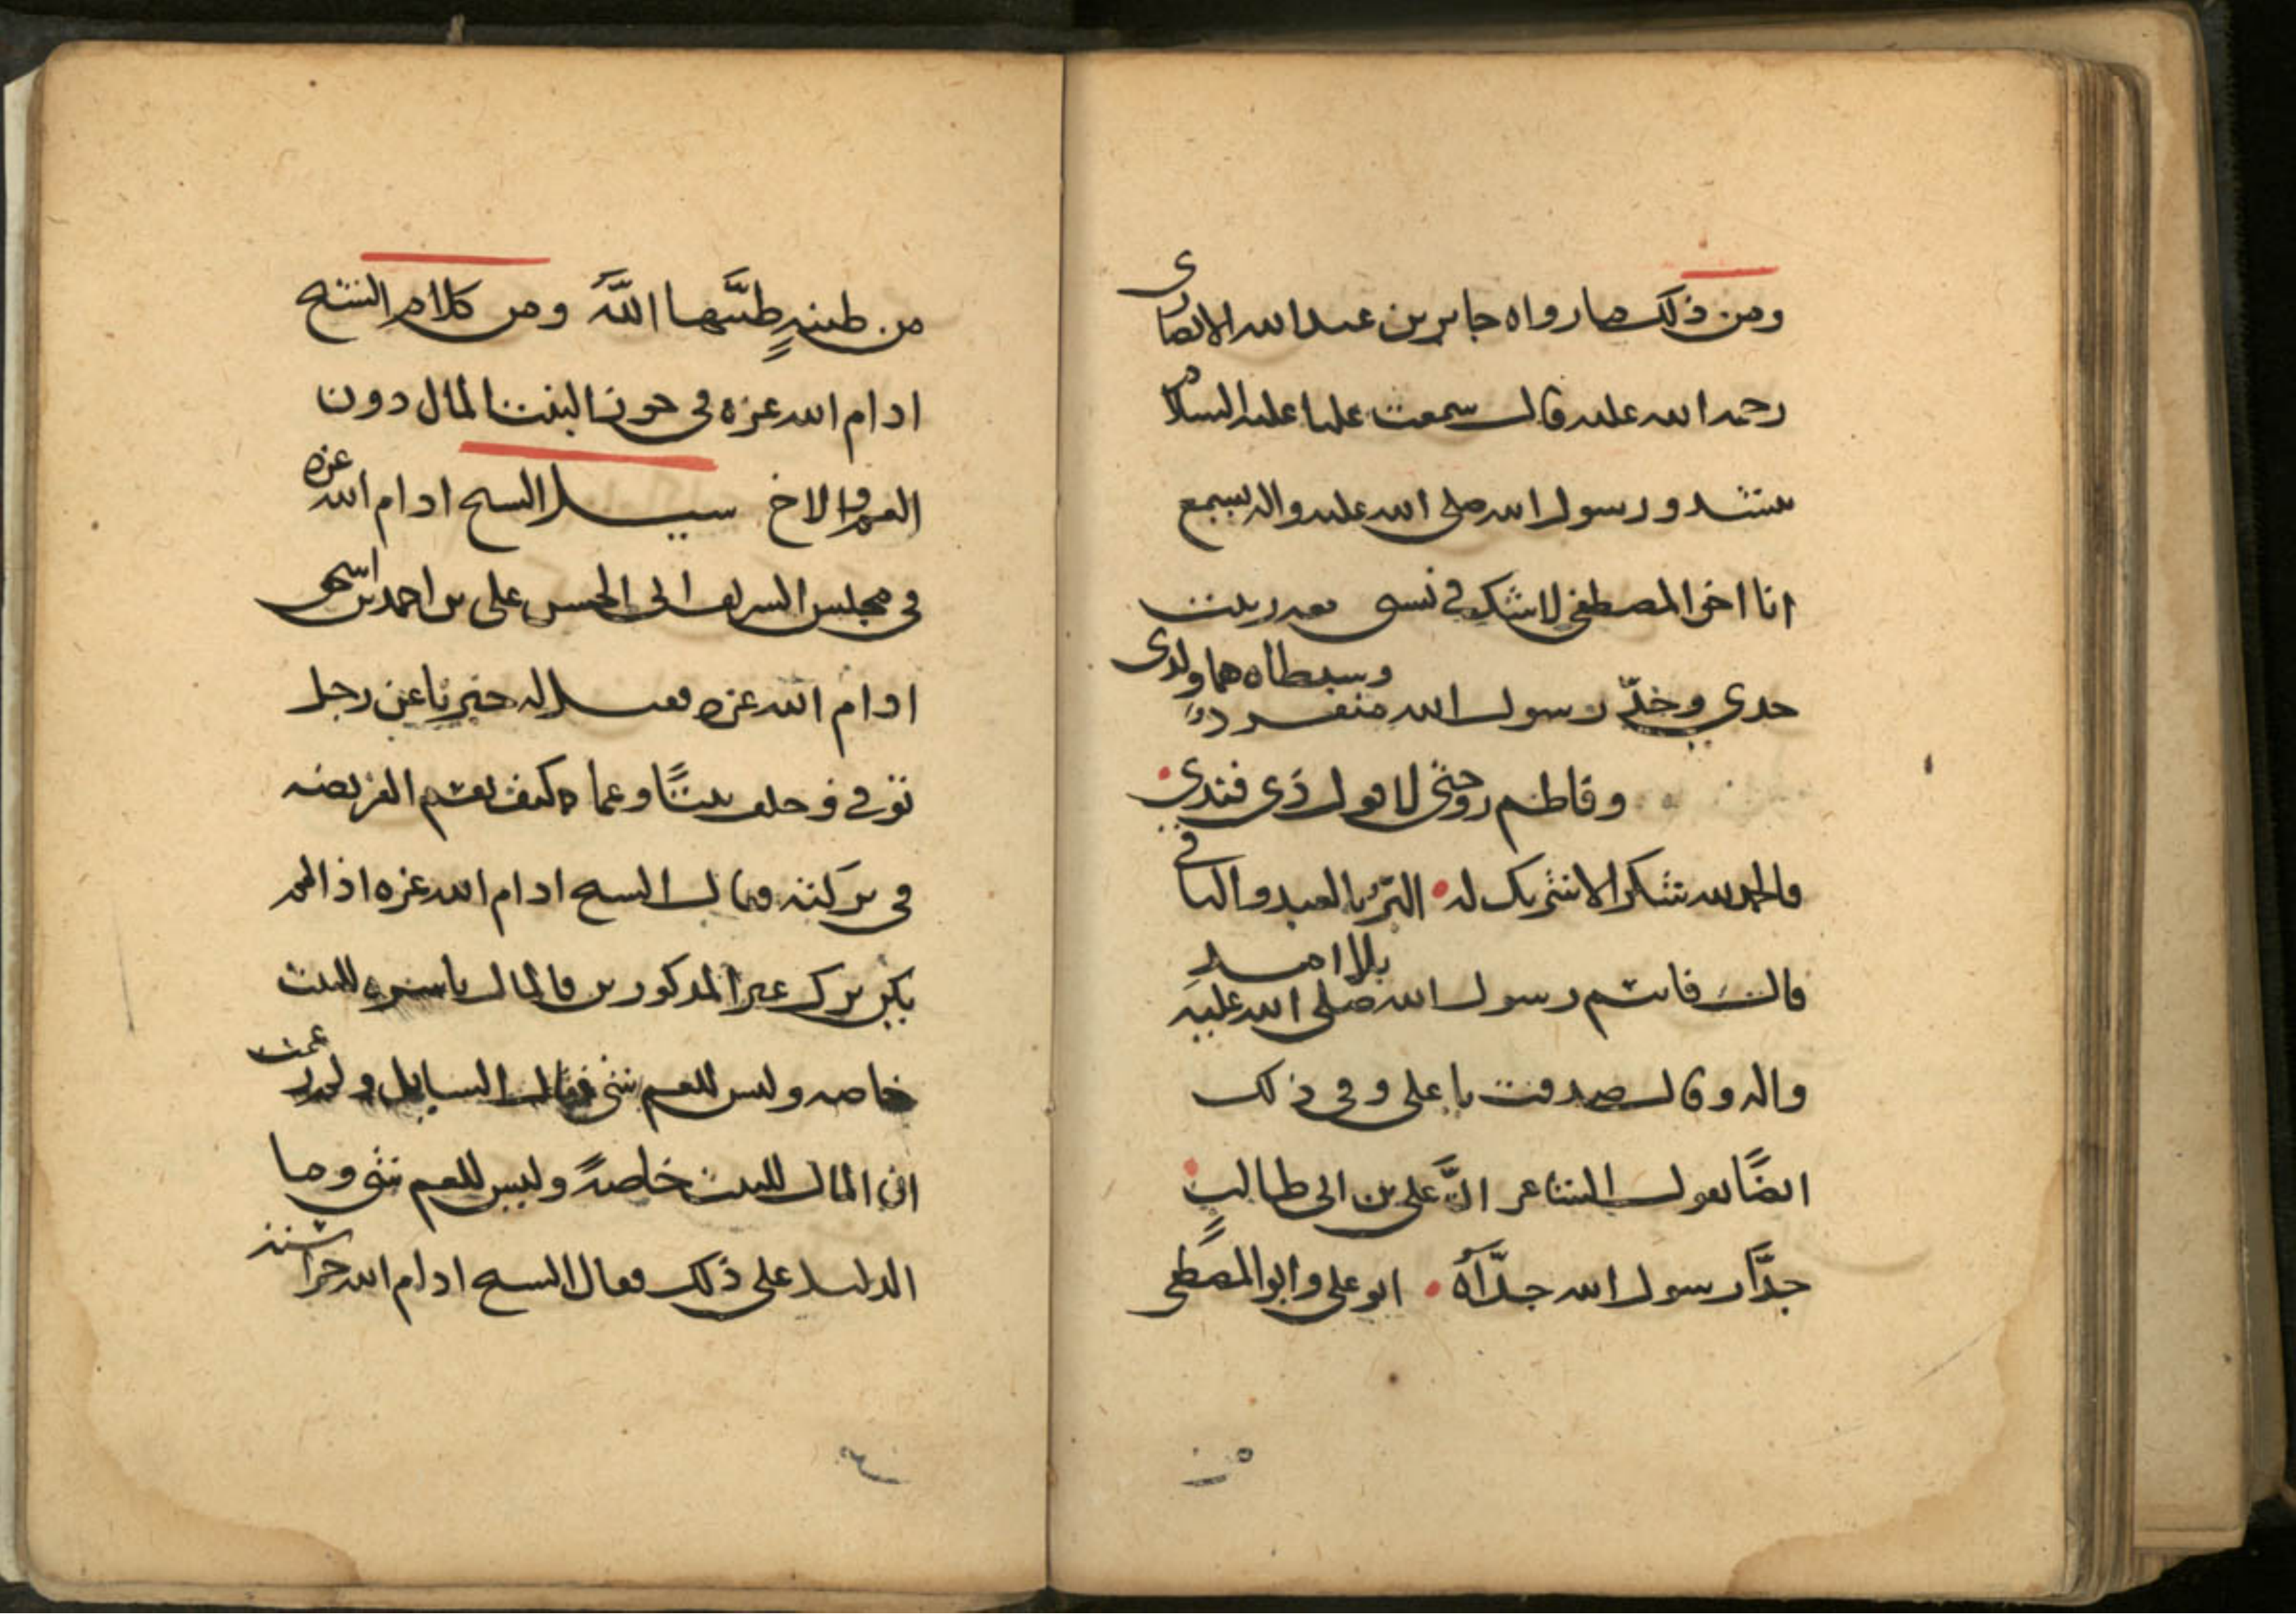 ومن ذلك ما رواه جابر بن عبد الله الانصارى
رحمه الله عليه قال سمعت عليا عليه السلام
ينشد ورسول الله صلى الله عليه واله يسمع
انا اخو المصطفى لا شك في نسبى معه ربيت
وسبطاه هما ولدى
جدي وجدّ رسول الله منفرد
وفاطم زوجتى لا قول ذى فندى
فالحمد لله شكرا لا شريك له البرّ بالعبد والباقى
بلا امد
قال فابتسم رسول الله صلى الله عليه
واله وقال صدقت يا على وفي ذلك
ايضًا يقول الشاعر انَّ على بن ابى طالبٍ
جدَّا رسول الله جدَّاه ابو على وابو المصطفى
٥٠
من طينةٍ طيَّبها اللهُ ومن كلام الشيخ
ادام الله عزه في حوز البنت المال دون
العم والاخ سيل الشيخ ادام الله عزه
في مجلس الشريف ابى الحسن على بن احمد بن اسحق
ادام الله عزه فقيل له خبرنا عن رجل
توفي وخلف بنتًا وعما كيف تقسم الفريضه
في تركته فقال الشيخ ادام الله عزه اذا لم
يكن ترك غير المذكورين فالمال باسره للبنت
خاصه وليس للعم شى فقال السايل ولم زعمت
ان المال للبنت خاصةً وليس للعم شى وما
الدليل على ذلك فقال الشيخ ادام الله حراسته